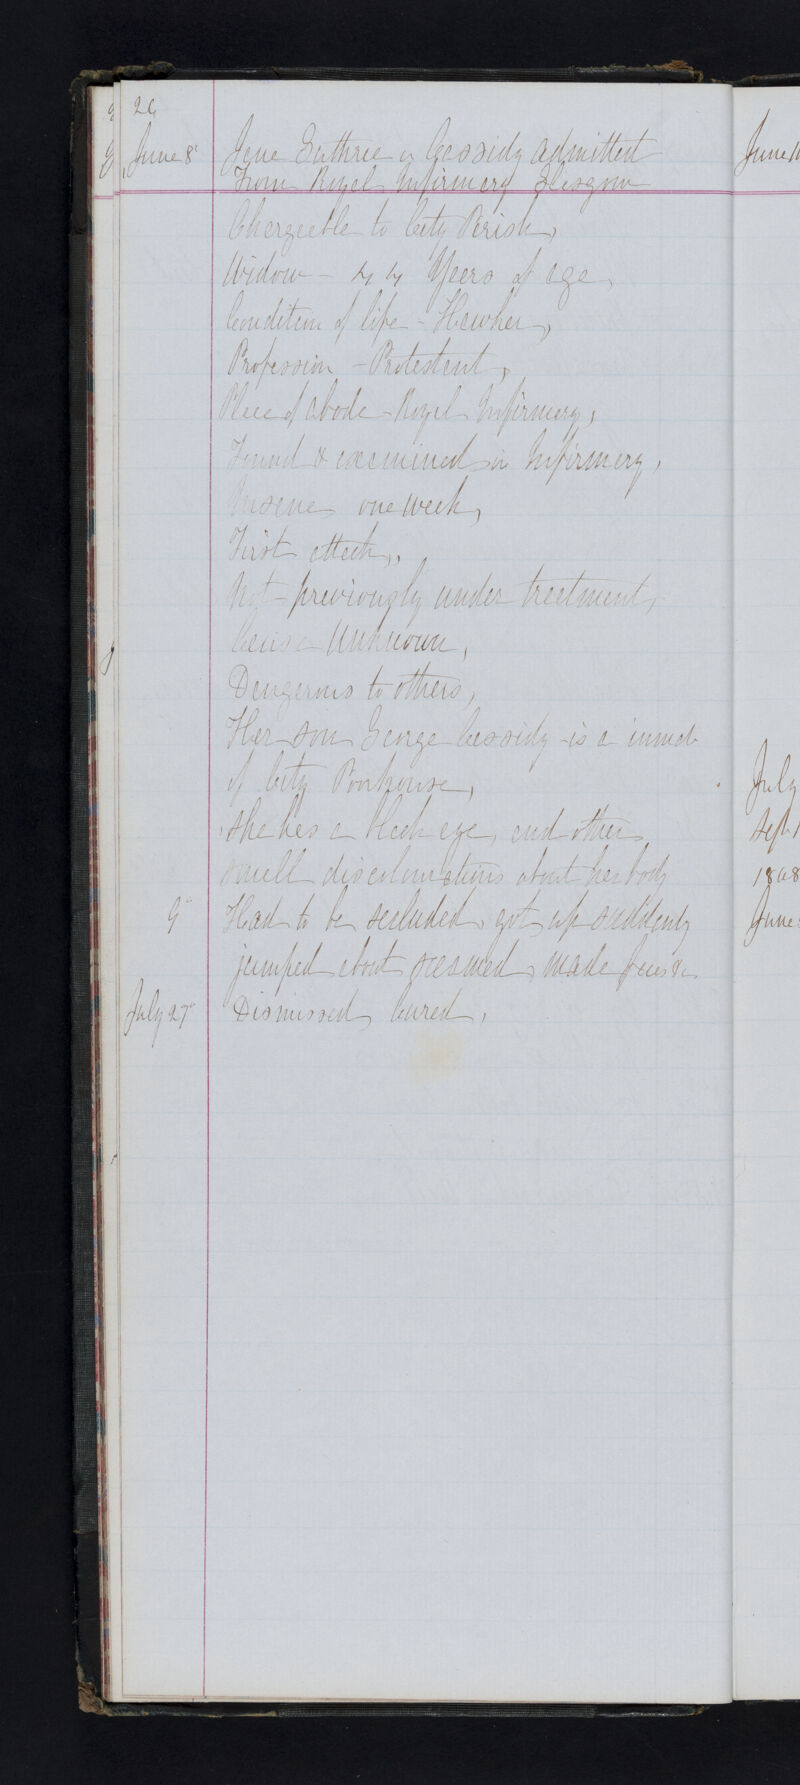 26
June 8" Jane Guthrie or Cassidy Admitted
From Royal Infirmary Glasgow
Chargeable to City Parish,
Widow - 44 Years of age,
Condition of life - Hawker,
Profession - Protestant,
Place of abode - Royal Infirmary,
Found & examined in Infirmary,
Insane one week,
First attack,,
Not previously under treatment,
Cause Unknown,
Dangerous to others,
Her son George Cassidy is a inmate
of City Poorhouse,
She has a black eye, and other
small discolourations about her body
9" Had to be secluded got up suddenly
jumped about screamed, made faces &c
July 27" Dismissed, Cured,
June
July
Sept
1868
June